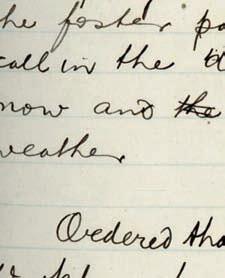 he foster pa
call in the
now and the
weather
Ordered tha